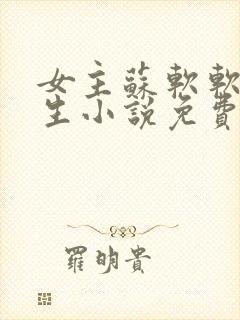 女主蘇軟軟
生小說免費
羅明貴